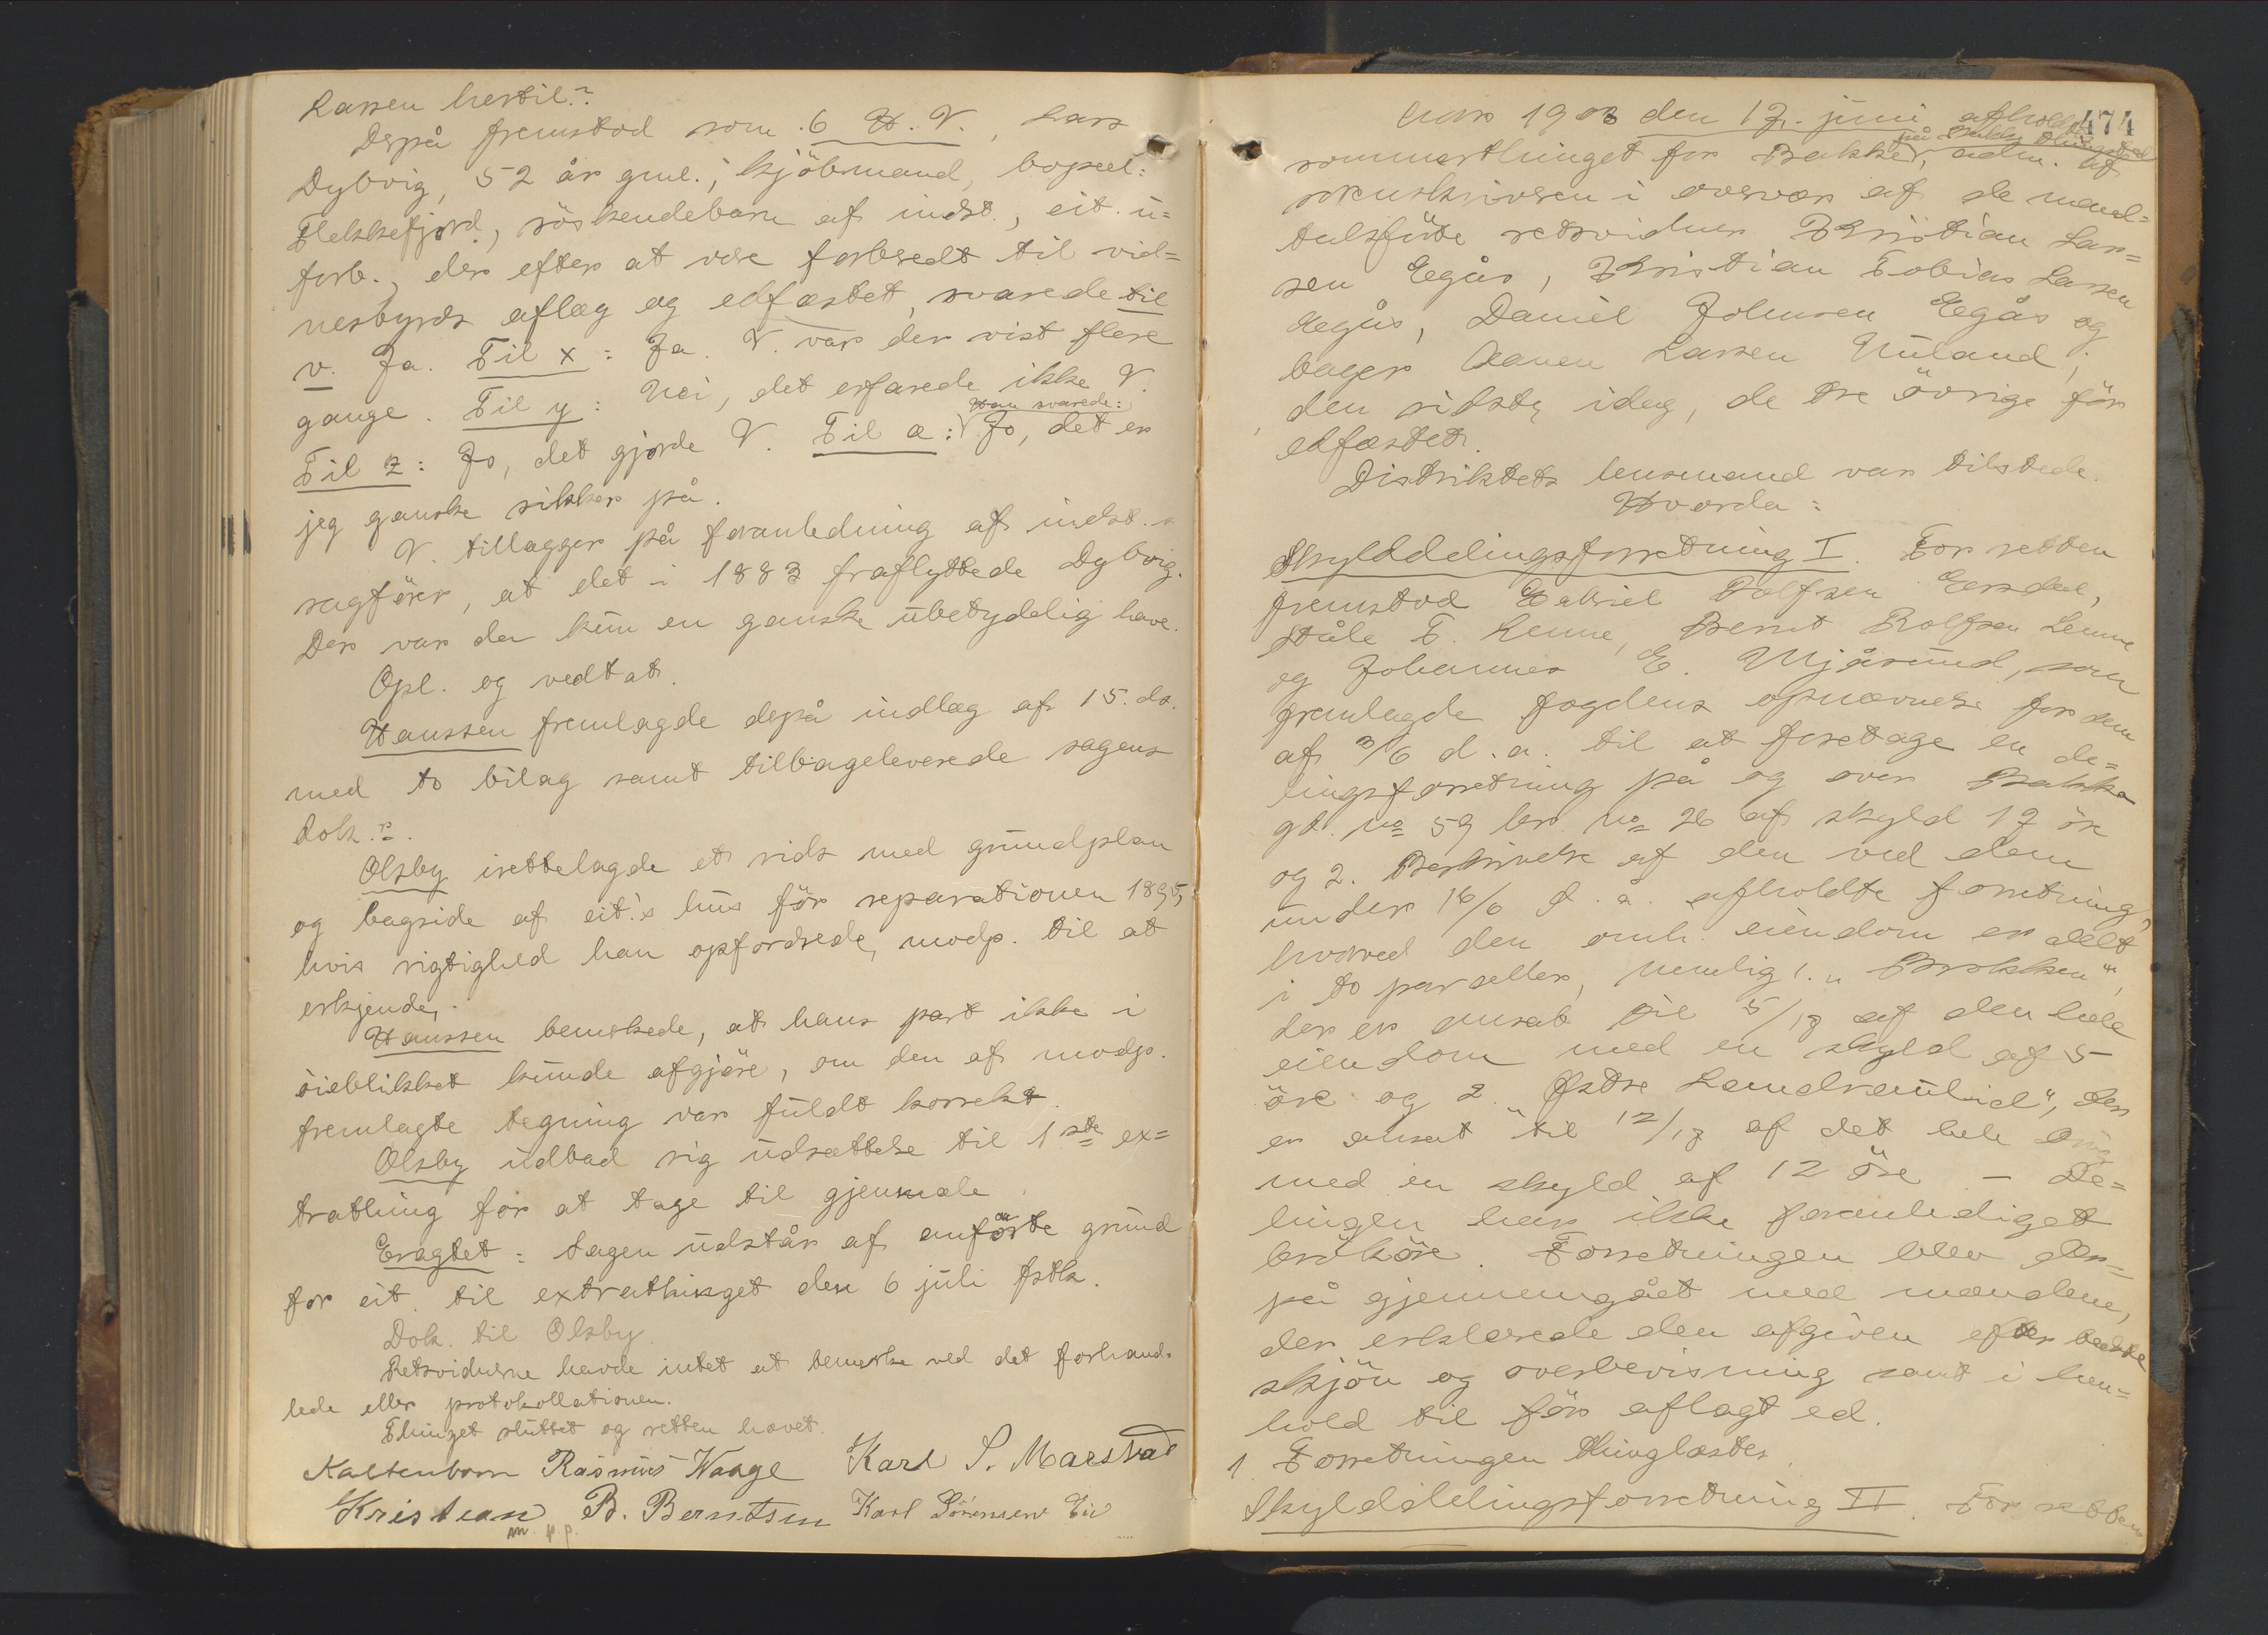 Larsen hertil?
Derpå fremstod som 6 H. V., Lars
Dybvig, 52 år gml., kjöbmand, bopæl:
Flekkefjord, söskendebarn af indst., cit. u=
forb., der efter at være forberedt til vid=
nesbyrds aflæg og edfæstet, svarede til
v. Ja. Til x: Ja. V. var der vist flere
gange. Til y: Nei, det erfarede ikke V.
Han svarede:
Til z: Jo, det gjorde V. Til æ: V Jo, det er
jeg ganske sikker på.
V. tillægger på foranledning af indst.s
sagförer, at det i 1883 fraflyttede Dybvig.
Der var da kun en ganske ubetydelig have.
Opl. og vedtat.
Hanssen fremlagde derpå indlæg af 15. ds.
med to bilag samt tilbageleverede sagens
dok.r.
Olsby irettelagde et rids med grundplan
og bagside af cit.'s hus för reparationen 1895,
hvis rigtighed han opfordrede modp. til at
erkjende.
Hanssen bemerkede, at hans part ikke i
öieblikket kunde afgjöre, om den af modp.
fremlagte tegning var fuldt korrekt.
Olsby udbad sig udsættelse til 1ste ex=
trathing for at tage til gjenmæle
Eragtet: Sagen udstår af anförte grund
for cit. til extrathinget den 6 juli fstk.
Dok. til Olsby.
Retsvidnerne havde intet at bemerke ved det forhand=
lede eller protokollationen.
Thinget sluttet og retten hævet.
Kaltenborn Rasmus Waage Karl S. Marstad
Kristian B. Berntsen Karl Sörensen Eie
m. p. p.
474
Aar 1903 den 17. juni afholdtes
på Bakke thingsted
sommerthinget for Bakke V, adm. af
sorenskriveren i overvær af de mand=
talsförte retsvidner Khristian Lar=
sen Egås, Khristian Tobias Larsen
Egås, Daniel Johnsen Egås og
bager Aanen Larsen Nuland,
den sidste idag, de tre övrige för
edfæstet.
Distriktets lensmand var tilstede.
Hvorda:
Skylddelingsforretning I. For retten
fremstod Gabriel Rolfsen Ersdal,
Ståle T. Lenne, Bernt Rolfsen Lenne
og Johannes G. Mjåsund, som
fremlagde fogdens opnævnelse for dem
af 3/6 d. a. til at foretage en de=
lingsforretning på og over Bakke
gd. No 59 br. No 26 af skyld 17 öre
og 2. Beskrivelse af den ved dem
under 16/6 d. a. afholdte forretning,
hvorved den omh. eiendom er delt
i to parseller, nemlig 1. „Brokken",
der er ansat til 5/17 af den hele
eiendom med en skyld af 5
öre og 2. „Östre Landraulid", der
er ansat til 12/17 af det hele brug
med en skyld af 12 öre – De=
lingen har ikke foranlediget
brököre. Forretningen blev der=
på gjennemgået med mændene,
der erklærede den afgiven efter bedste
skjön og overbevisning samt i hen=
hold til för aflagt ed.
1. Forretningen thinglæstes.
Skylddelingsforretning II. For retten